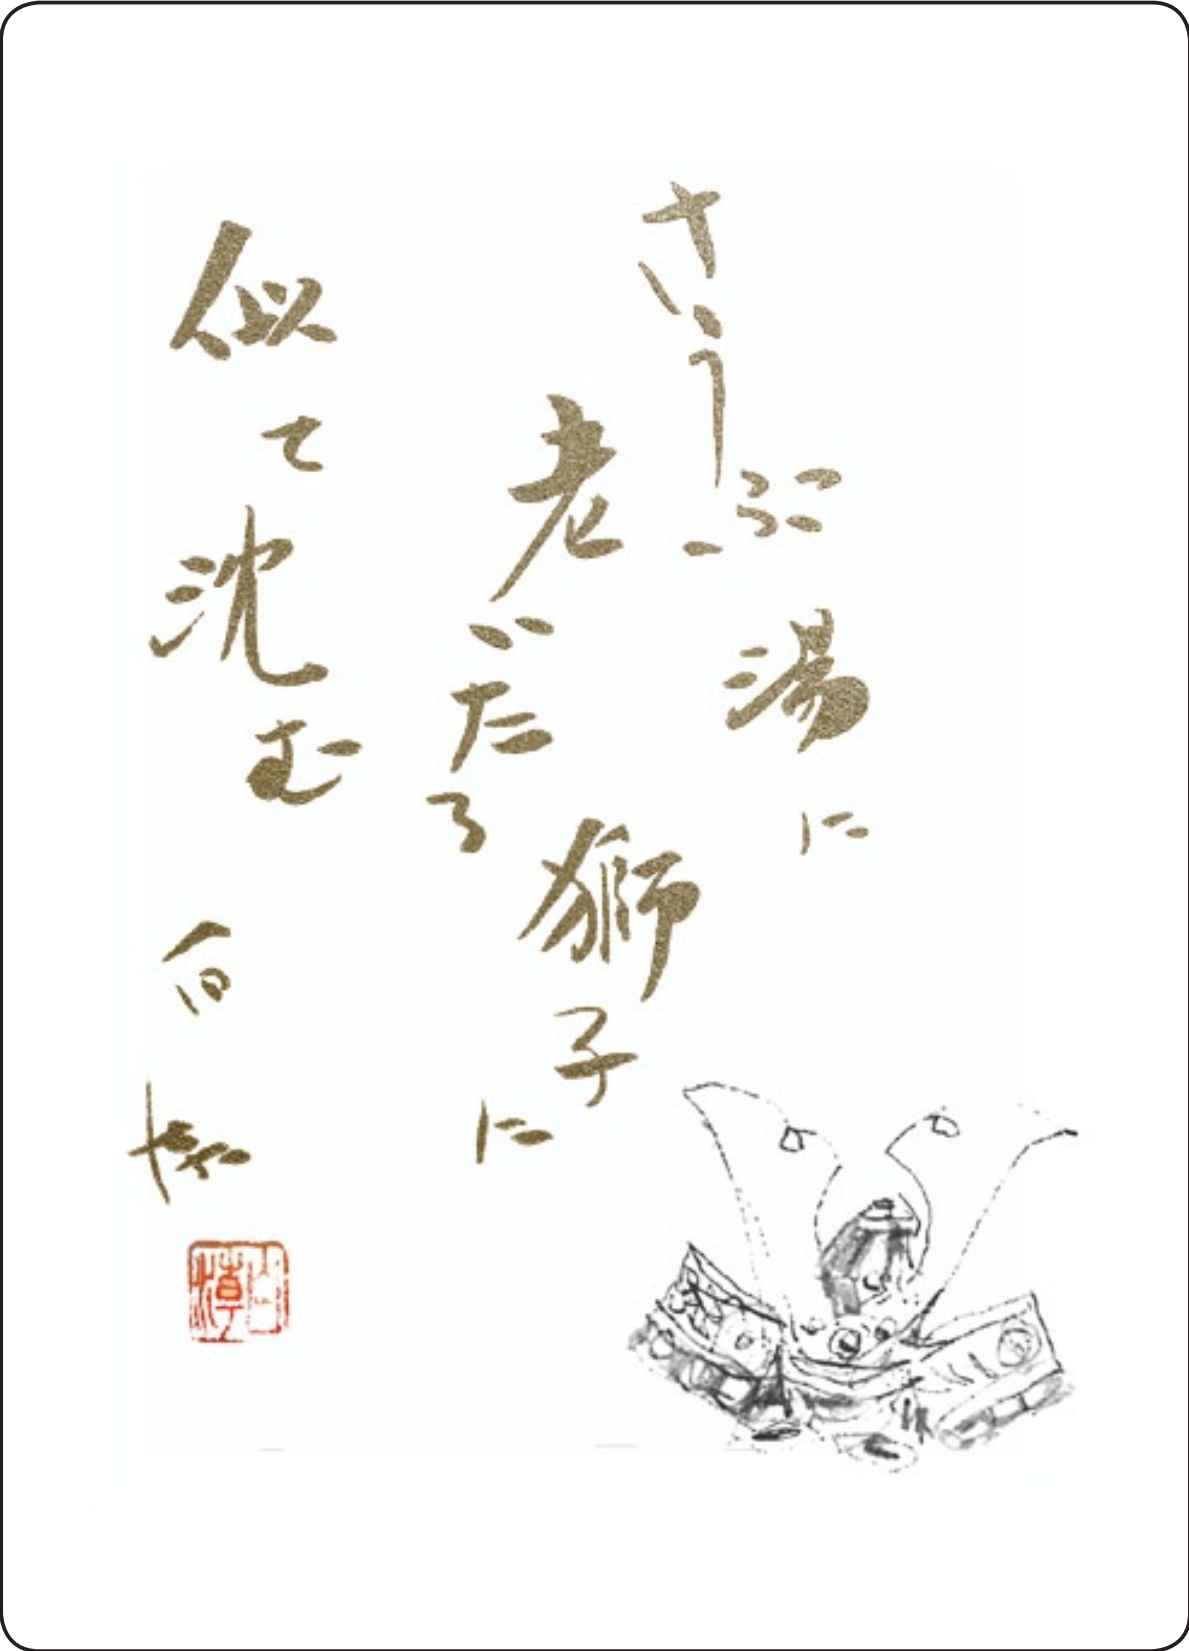 さうぶ湯に
老いたる
獅子に
似て沈む